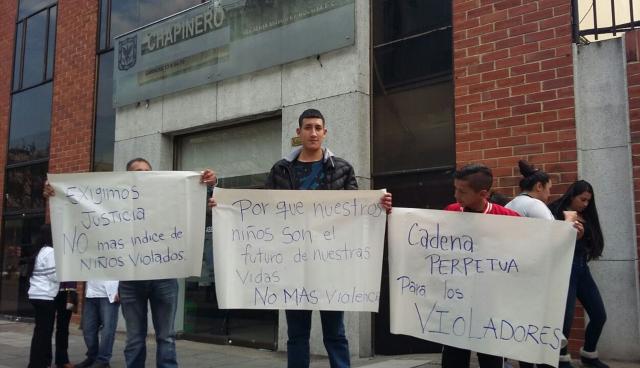 CHAPINERO
EXIGIMOS
JUSTICIA
NO mas indice de
NIÑOS VIOLADOS.
Por que nuestros
niños son el
futuro de nuestras
vidas
NO MAS Violencia
Cadena
PERPETUA
Para los
VIOLADORES